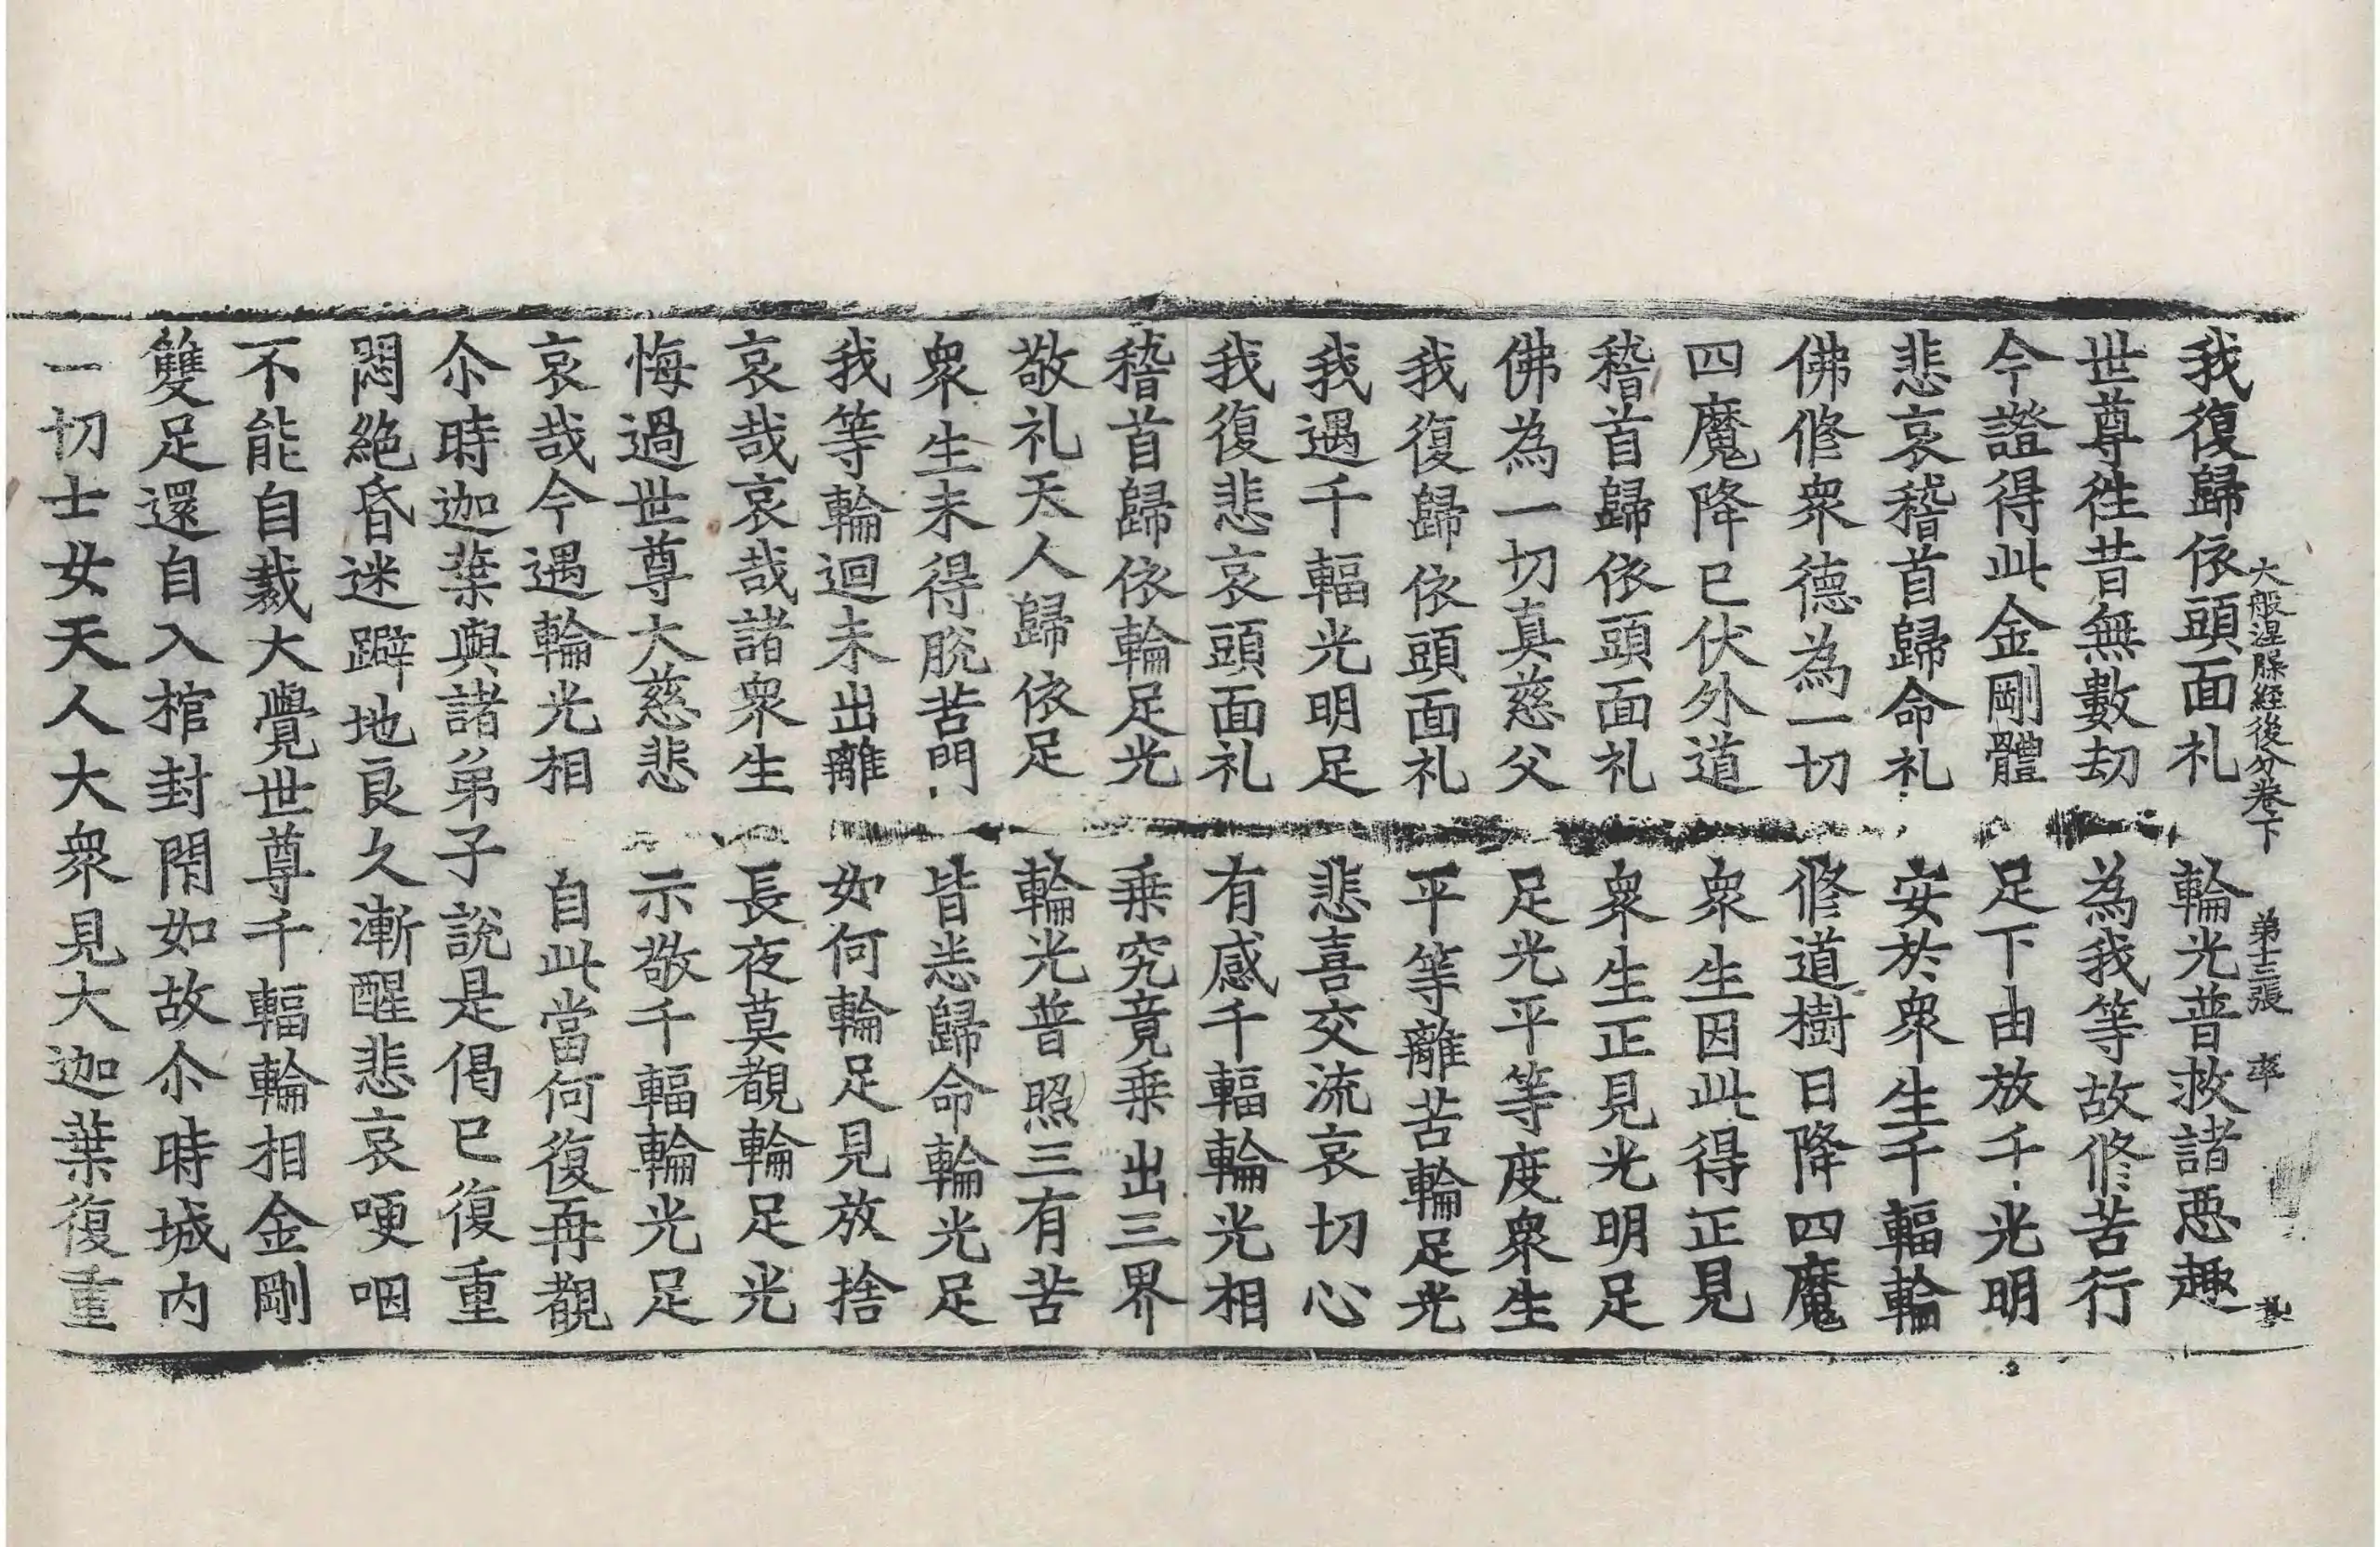 大般涅槃経後分卷下 第十三張 率
我復歸依頭面礼 輪光普救諸惡趣
世尊徃昔無數劫 為我等故修苦行
今證得此金剛體 足下由放千光明
悲哀稽首歸命礼 安於衆生千輻輪
佛修衆德為一切 修道樹日降四魔
四魔降已伏外道 衆生因此得正見
稽首歸依頭面礼 衆生正見光明足
佛為一切真慈父 足光平等度衆生
我復歸依頭面礼 平等離苦輪足光
我遇千輻光明足 悲喜交流哀切心
我復悲哀頭面礼 有感千輻輪光相
稽首歸依輪足光 乗究竟乗出三界
敬礼天人歸依足 輪光普照三有苦
衆生未得脫苦門 皆悉歸命輪光足
我等輪迴未出離 如何輪足見放捨
哀哉哀哉諸衆生 長夜莫覩輪足光
悔過世尊大慈悲 示敬千輻輪光足
哀哉今遇輪光相 自此當何復再覩
尒時迦葉與諸弟子說是偈已復重
悶絕昏迷躃地良久漸醒悲哀哽咽
不能自裁大覺世尊千輻輪相金剛
雙足還自入棺封閇如故尒時城内
一切士女天人大衆見大迦葉復重